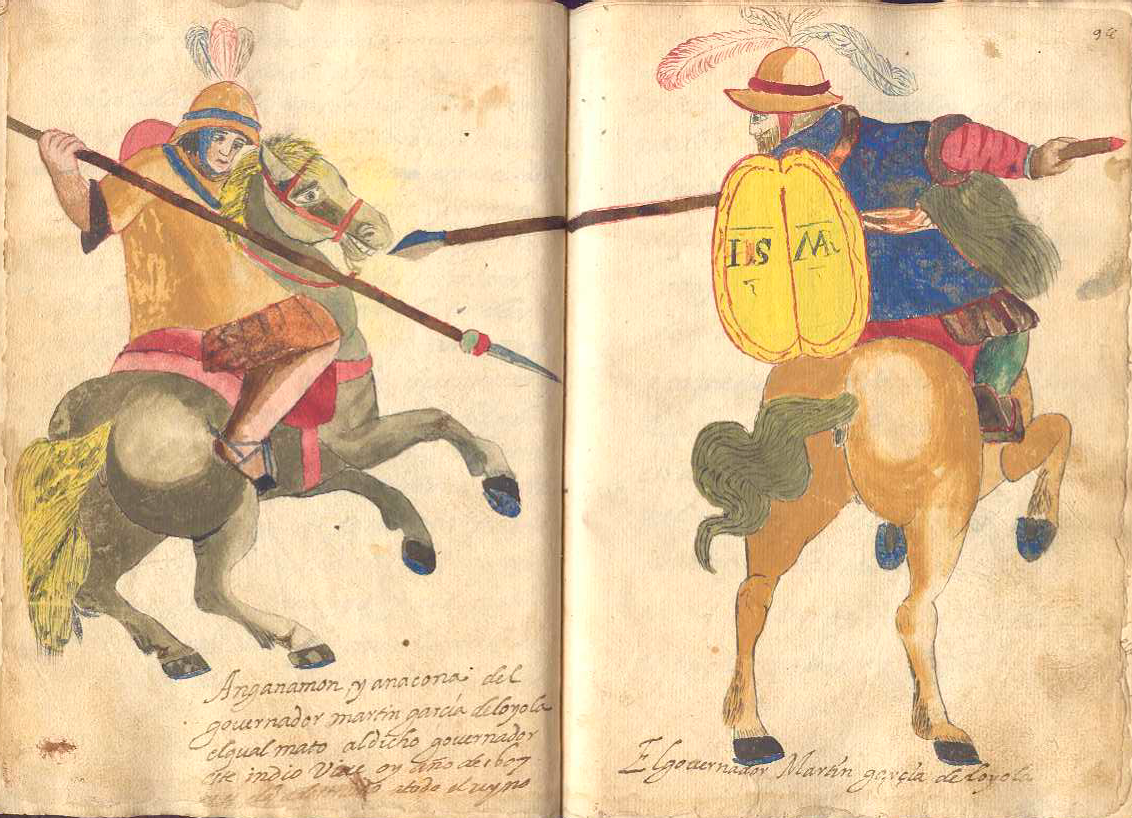 Anganamon yanacona del
governador martin garcía de loyola
el qual mato al dicho governador
indio Vive oy año de 1607
atodo el reyno
94
IHS MA
El governador Martín garçía de loyola